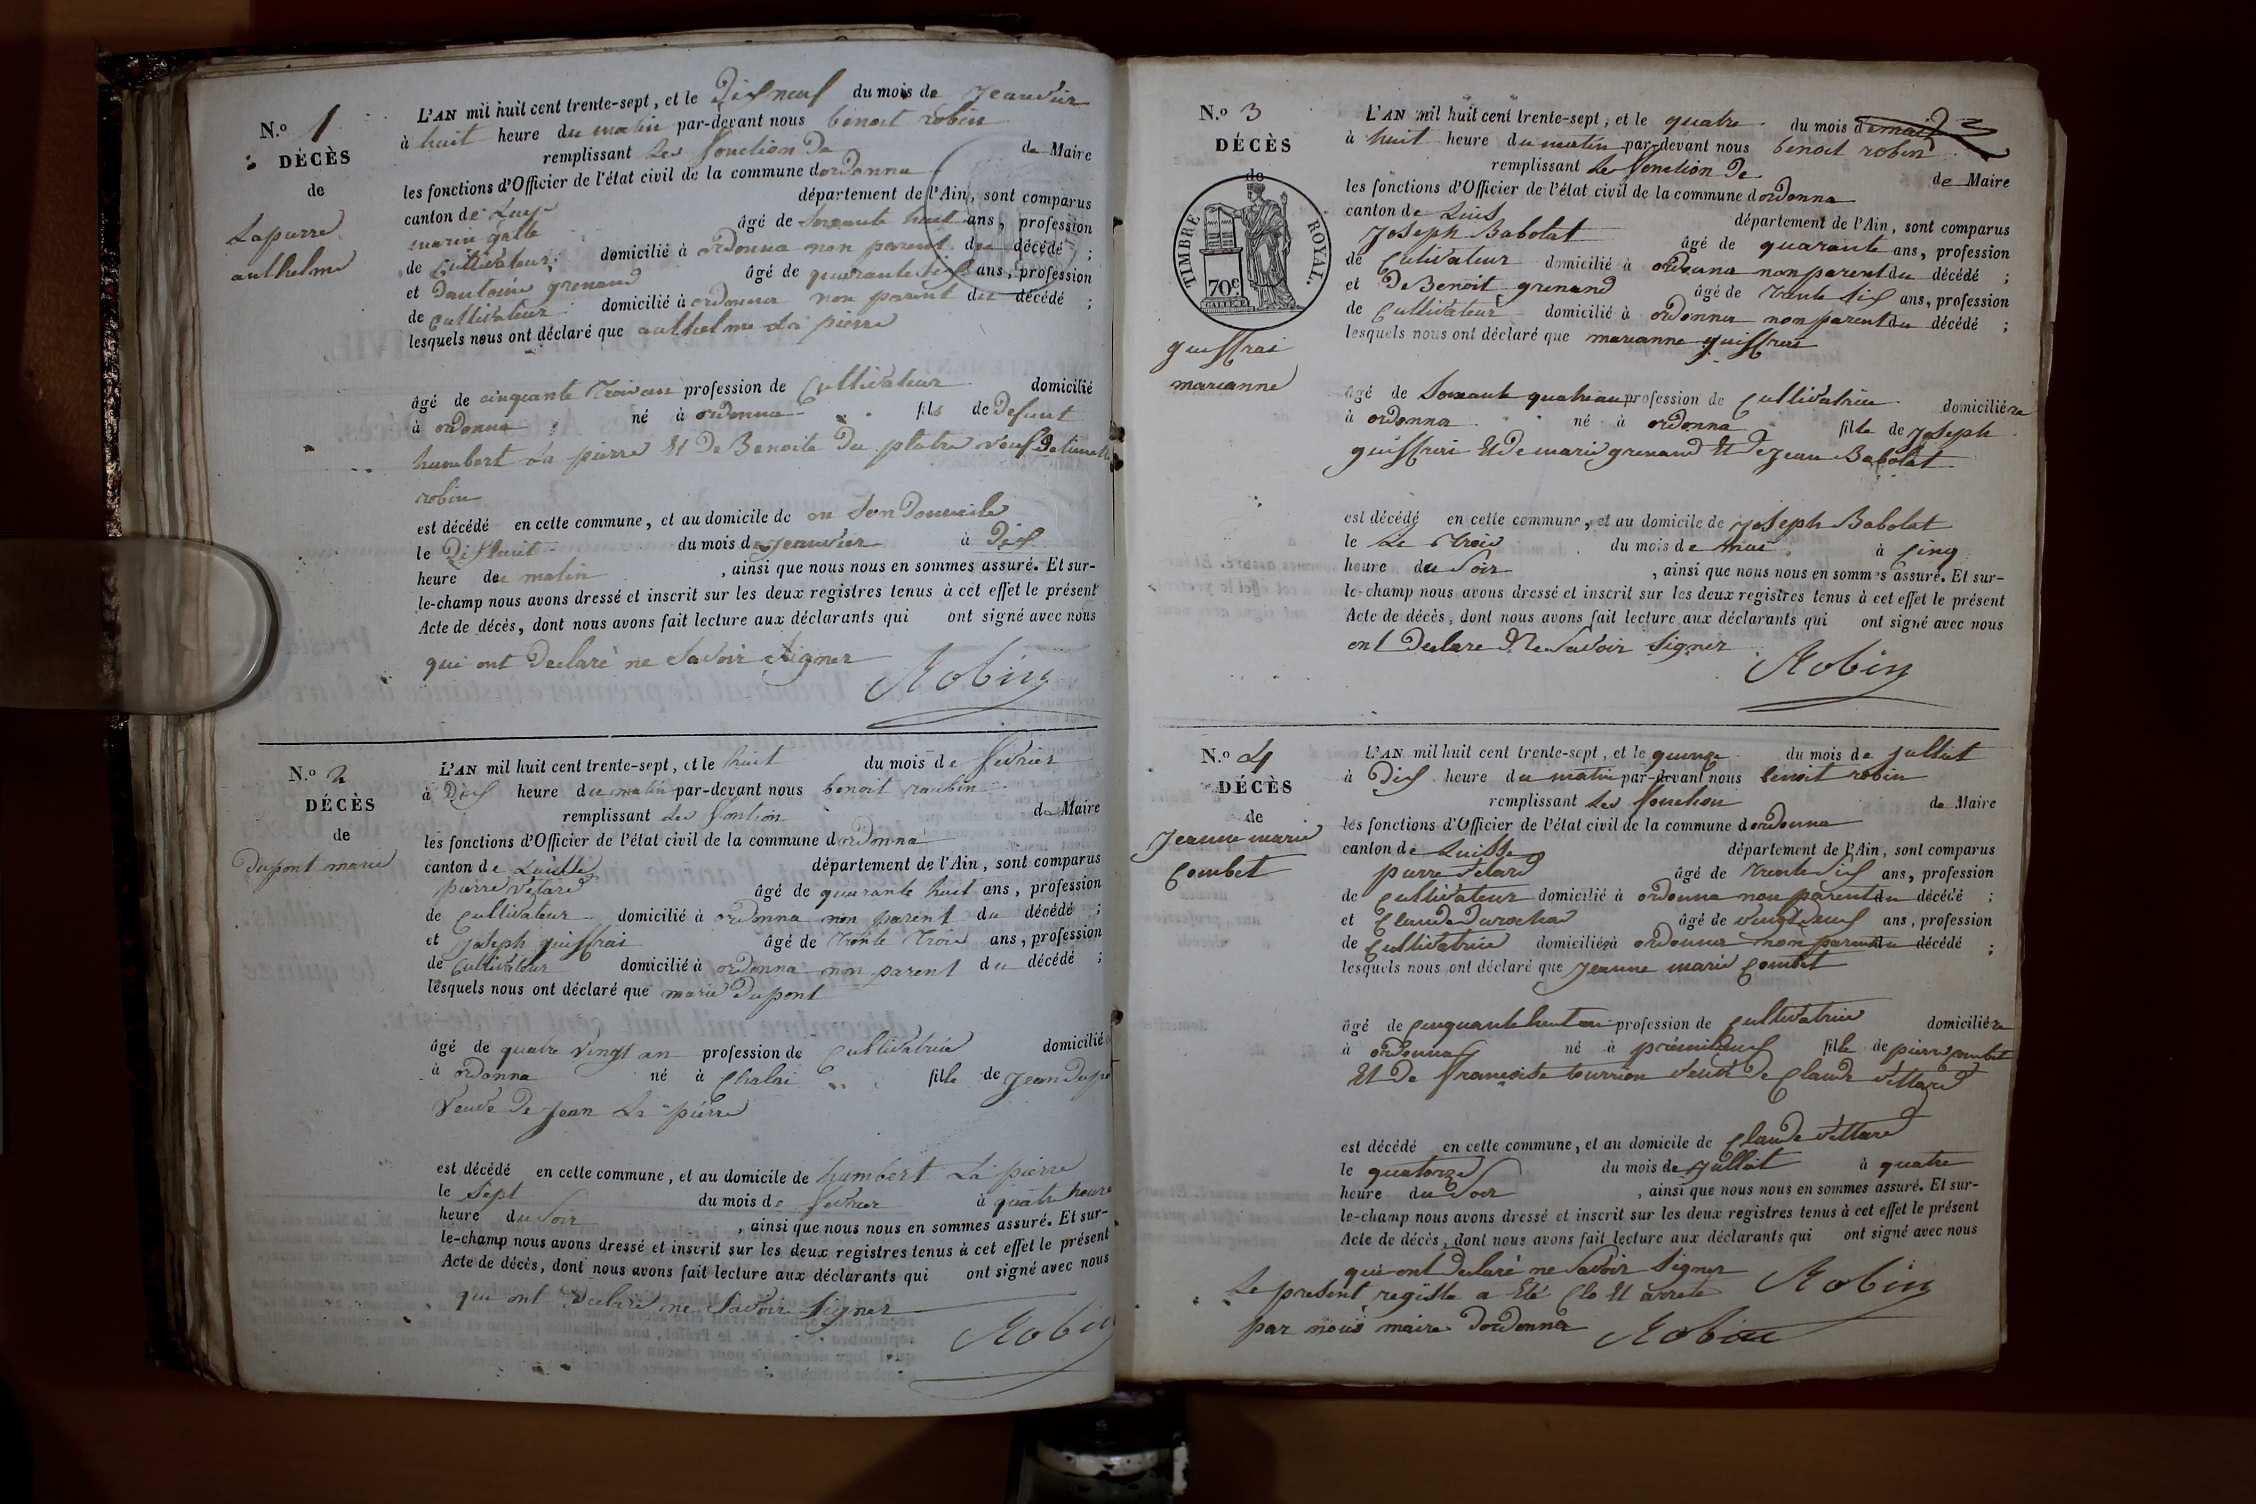 N.o 1
DÉCÈS
de
Lapierre
anthelme
L'AN mil huit cent trente-sept, et le dixneuf du mois de Jeanvier
à huit heure du matin par-devant nous benoit robin
remplissant les fonction De de Maire
les fonctions d'Officier de l'état civil de la commune dordonna
canton de Luis département de l'Ain, sont comparus
marin galle âgé de Soixante huit ans, profession
de Cultivateur domicilié à ordonna non parent du décédé ;
et Dantoine grenand âgé de quarante six ans, profession
de Cultivateur domicilié à ordonna non parent du décédé ;
lesquels nous ont déclaré que anthelme la pierre
âgé de cinquante trois an profession de Cultivateur domicilié
à ordonna né à ordonna fils de Defunt
humbert La pierre Et De Benoite Du platre veuf De
robin
est décédé en cette commune, et au domicile de en Son Domicile
le Dixhuit du mois de Jeanvier à Dix
heure du matin , ainsi que nous nous en sommes assuré. Et sur-
le-champ nous avons dressé et inscrit sur les deux registres tenus à cet effet le présent
Acte de décès, dont nous avons fait lecture aux déclarants qui ont signé avec nous
qui ont Declaré ne Savoir Signer
Robin
N.o 2
DÉCÈS
de
Dupont marie
L'AN mil huit cent trente-sept, et le huit du mois de Fevrier
à Dix heure du matin par-devant nous benoit roubin
remplissant les fontion de Maire
les fonctions d'Officier de l'état civil de la commune dordonna
canton de Luisse département de l'Ain, sont comparus
pierre vétard âgé de quarante huit ans, profession
de Cultivateur domicilié à ordonna non parent du décédé ;
et Joseph guiffrai âgé de trente trois ans, profession
de Cultivateur domicilié à ordonna non parent du décédé ;
lesquels nous ont déclaré que marie Dupont
âgé de quatre vingt an profession de Cultivatrice domicilié
à ordonna né à Chalai fille de Jean Dupo
Veuve De Jean La pierre
est décédé en cette commune, et au domicile de humbert La pierre
le Sept du mois de fevrier à quatre heure
heure du Soir , ainsi que nous nous en sommes assuré. Et sur-
le-champ nous avons dressé et inscrit sur les deux registres tenus à cet effet le présent
Acte de décès, dont nous avons fait lecture aux déclarants qui ont signé avec nous
qui ont Declaré ne Savoir Signer
Robin
N.o 3
DÉCÈS
de
TIMBRE ROYAL.
70c.
guiffrai
marianne
L'AN mil huit cent trente-sept, et le quatre du mois de mai
à huit heure du matin par-devant nous benoit robin
remplissant les fonction De de Maire
les fonctions d'Officier de l'état civil de la commune dordonna
canton de Luis département de l'Ain, sont comparus
Joseph Babolat âgé de quarante ans, profession
de Cultivateur domicilié à ordonna non parent du décédé ;
et De Benoit grenand âgé de trente six ans, profession
de Cultivateur domicilié à ordonna non parent du décédé ;
lesquels nous ont déclaré que marianne guiffrei
âgé de Soixante quatre an profession de Cultivatrice domiciliére
à ordonna né à ordonna fille de Joseph
guiffrei Et de marie grenand Et De Jean Babolat
est décédé en cette commune, et au domicile de Joseph Babolat
le Le trois du mois de mai à Cinq
heure du Soir , ainsi que nous nous en sommes assuré. Et sur-
le-champ nous avons dressé et inscrit sur les deux registres tenus à cet effet le présent
Acte de décès, dont nous avons fait lecture aux déclarants qui ont signé avec nous
ont Declare Ne Savoir Signer
Robin
N.o 4
DÉCÈS
de
Jeanne marie
Combet
L'AN mil huit cent trente-sept, et le quinze du mois de Jullet
à Dix heure du matin par-devant nous benoit robin
remplissant les fonction de Maire
les fonctions d'Officier de l'état civil de la commune dordonna
canton de Luisse département de l'Ain, sont comparus
pierre vétard âgé de trente six ans, profession
de Cultivateur domicilié à ordonna non parent du décédé ;
et Claude âgé de vingt neuf ans, profession
de Cultivatrice domiciliée à ordonna non parent du décédé ;
lesquels nous ont déclaré que Jeanne marie Combet
âgé de Cinquante huit an profession de Cultivatrice domiciliére
à ordonna né à fille de pierre Combet
Et De francoise tourrion veuve De Claude vettard
est décédé en cette commune, et au domicile de Claude vettard
le quatorze du mois de Jullet à quatre
heure du Soir , ainsi que nous nous en sommes assuré. Et sur-
le-champ nous avons dressé et inscrit sur les deux registres tenus à cet effet le présent
Acte de décès, dont nous avons fait lecture aux déclarants qui ont signé avec nous
qui ont Declaré ne Savoir Signer
Robin
Le present registe a Eté Clo Et arrete
par nous maire Dordonna
Robin